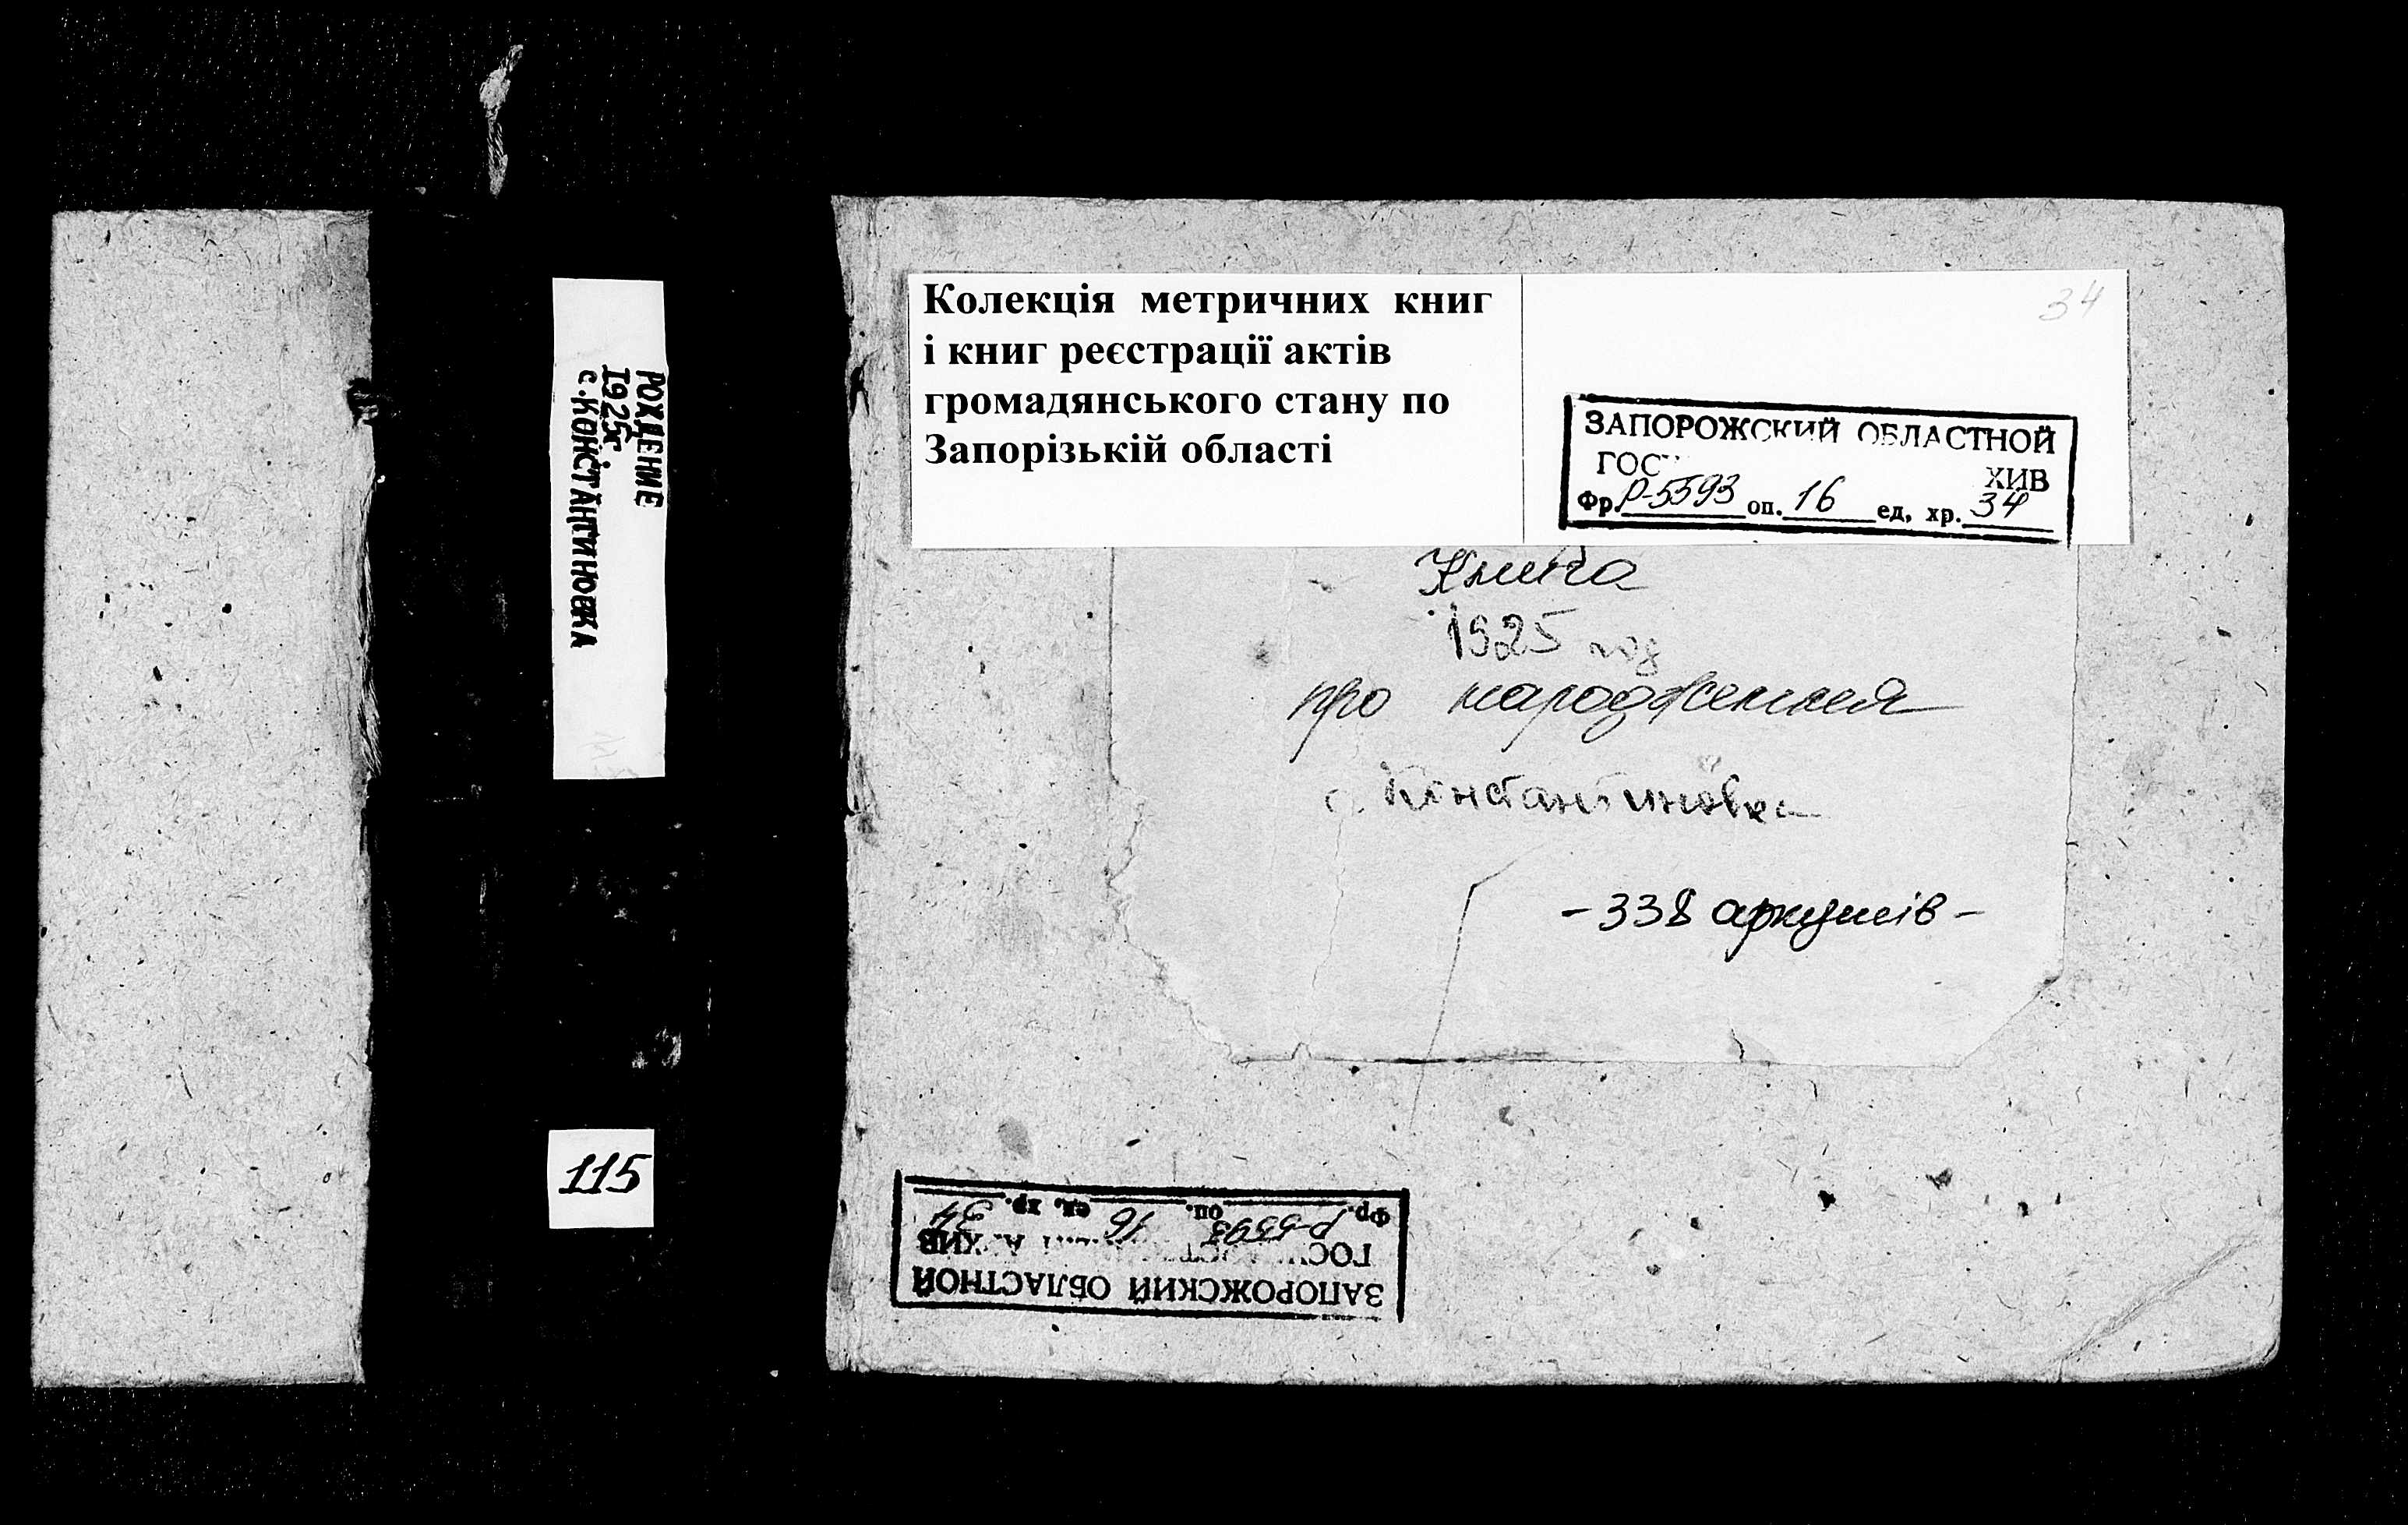 РОЖДЕНИЕ
1925г.
с.КОНСТАНТИНОВКА
115
Колекція метричних книг
і книг реєстрації актів
громадянського стану по
Запорізькій області
34
ЗАПОРОЖСКИЙ ОБЛАСТНОЙ
ГОС ХИВ
Фр. Р-5593 оп. 16 ед. хр. 34
Книга
1925 год
про народження
с. Константиновка
-338 аркушів-
ЗАПОРОЖСКИЙ ОБЛАСТНОЙ
ГОС ХИВ
Фр. Р-5593 оп. 16 ед. хр. 34